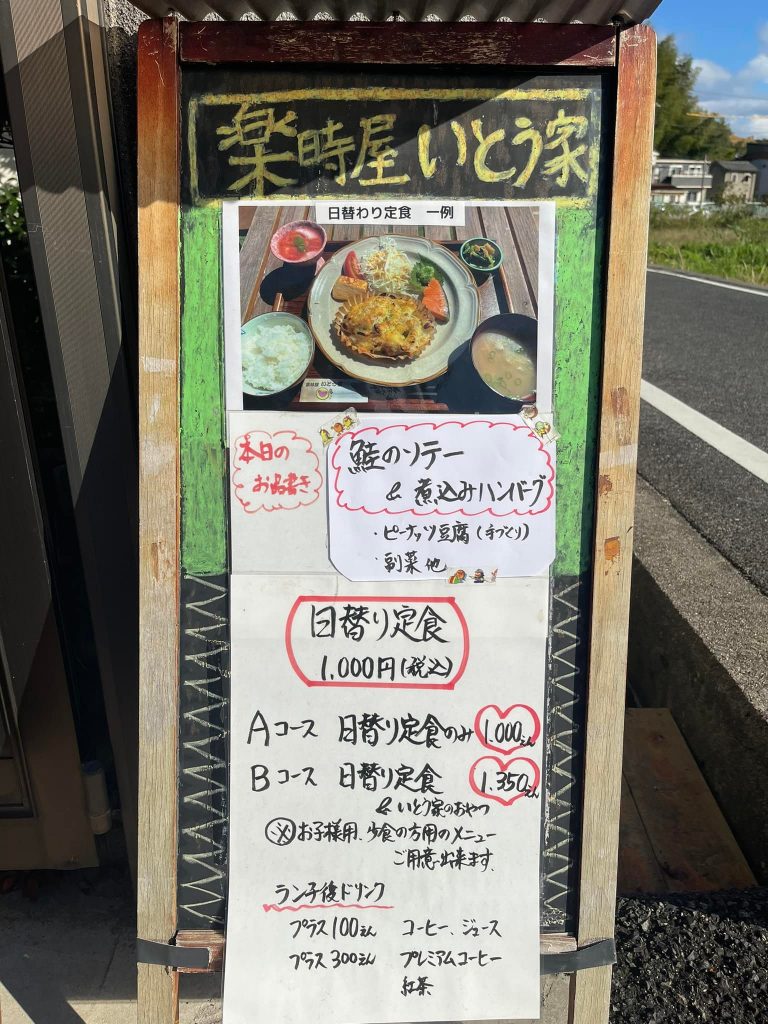 楽時屋 いとう家
日替わり定食 一例
本日の
お品書き
鮭のソテー
& 煮込みハンバーグ
・ピーナッツ豆腐(手づくり)
・副菜 他
日替り定食
1,000円(税込)
Aコース 日替り定食のみ 1.000えん
Bコース 日替り定食 1.350えん
& いとう家のおやつ
※お子様用、少食の方用のメニュー
ご用意出来ます。
ランチ後ドリンク
プラス100えん コーヒー、ジュース
プラス300えん プレミアムコーヒー
紅茶